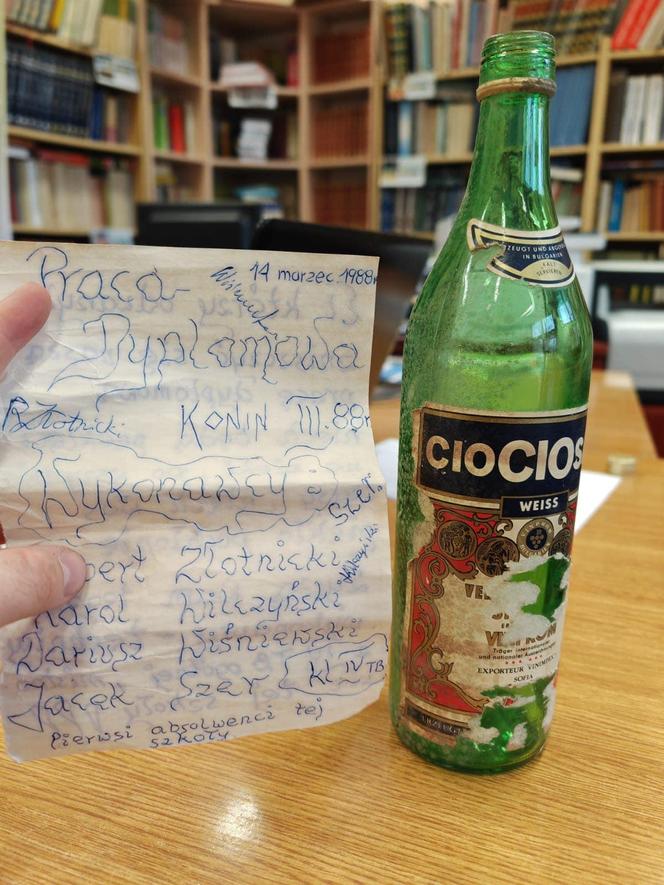 14 marzec.1988r
Praca-
Wiśniewski
Dyplomowa
R.Złotnicki
KONIN III.88r
Wykonawcy:
Szer.
Wilczyński
bert Złotnicki
Karol Wilczyński
Dariusz Wiśniewski
Jacek Szer KL IV TB
Pierwsi absolwenci tej
szkoły
ERZEUGT UND ABGE
IN BULGARIEN
KALT
SERVIEREN
CIOCIOS
WEISS
Träger internationaler
und nationaler
EXPORTEUR VINIMPEX
SOFIA